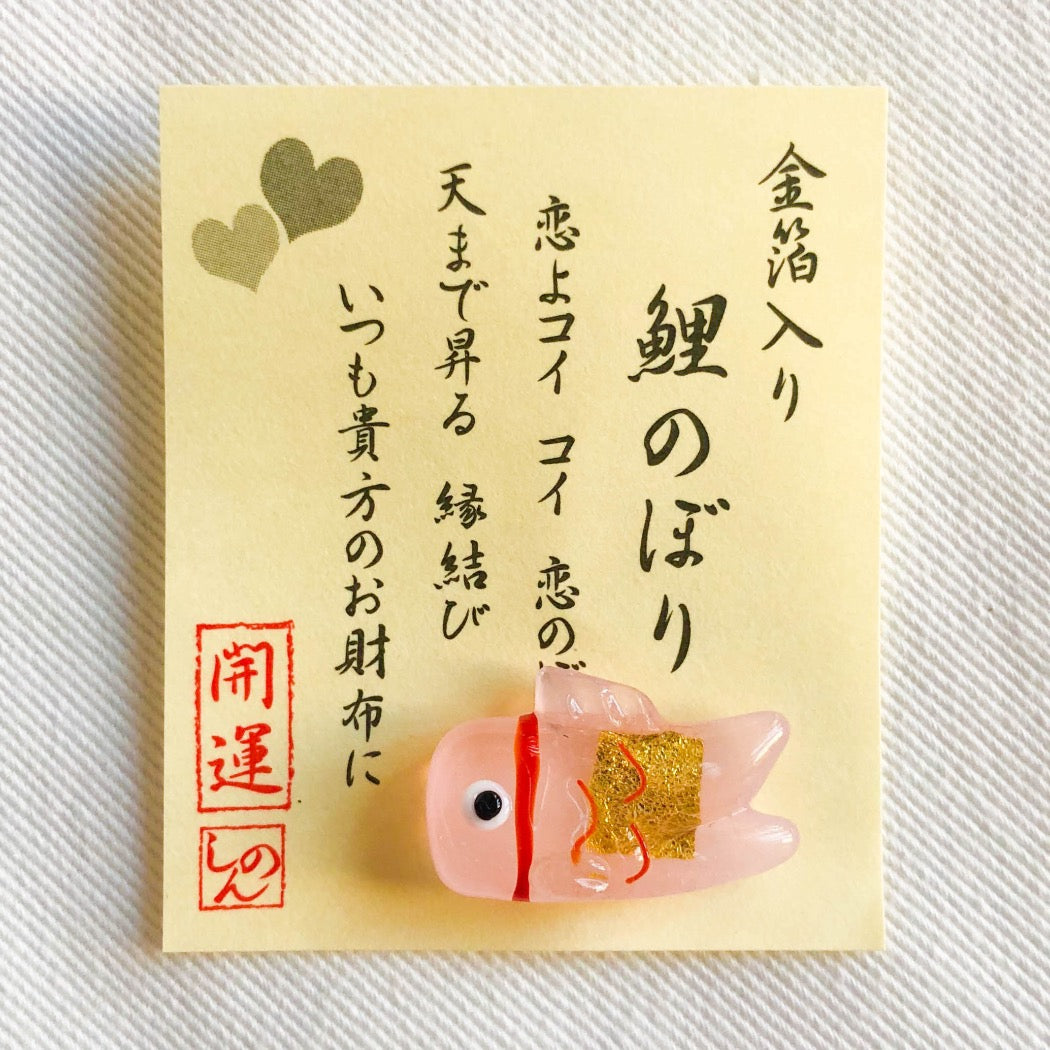 金箔入り
鯉のぼり
恋よコイ コイ 恋のぼ
天まで昇る 縁結び
いつも貴方のお財布に
開運
しんの